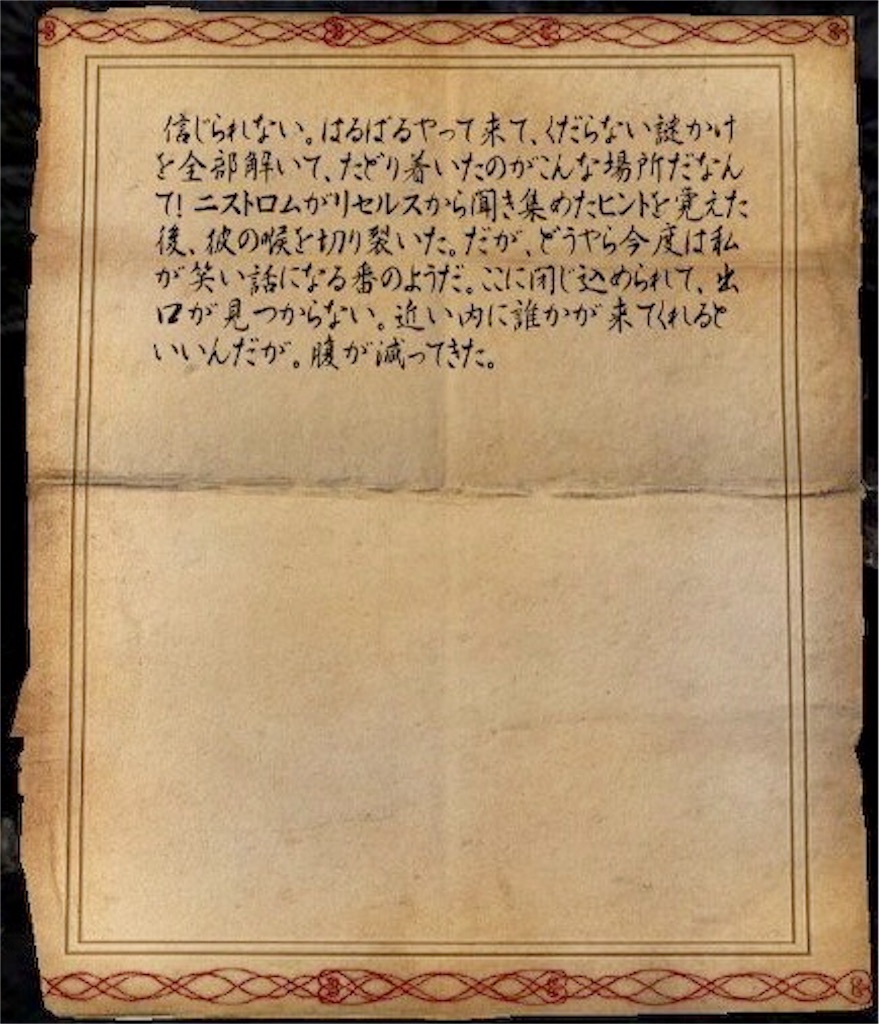 信じられない。はるばるやって来て、くだらない謎かけ
を全部解いて、たどり着いたのがこんな場所だなん
て! ニストロムがリセルスから聞き集めたヒントを覚えた
後、彼の喉を切り裂いた。だが、どうやら今度は私
が笑い話になる番のようだ。ここに閉じ込められて、出
口が見つからない。近い内に誰かが来てくれると
いいんだが。腹が減ってきた。